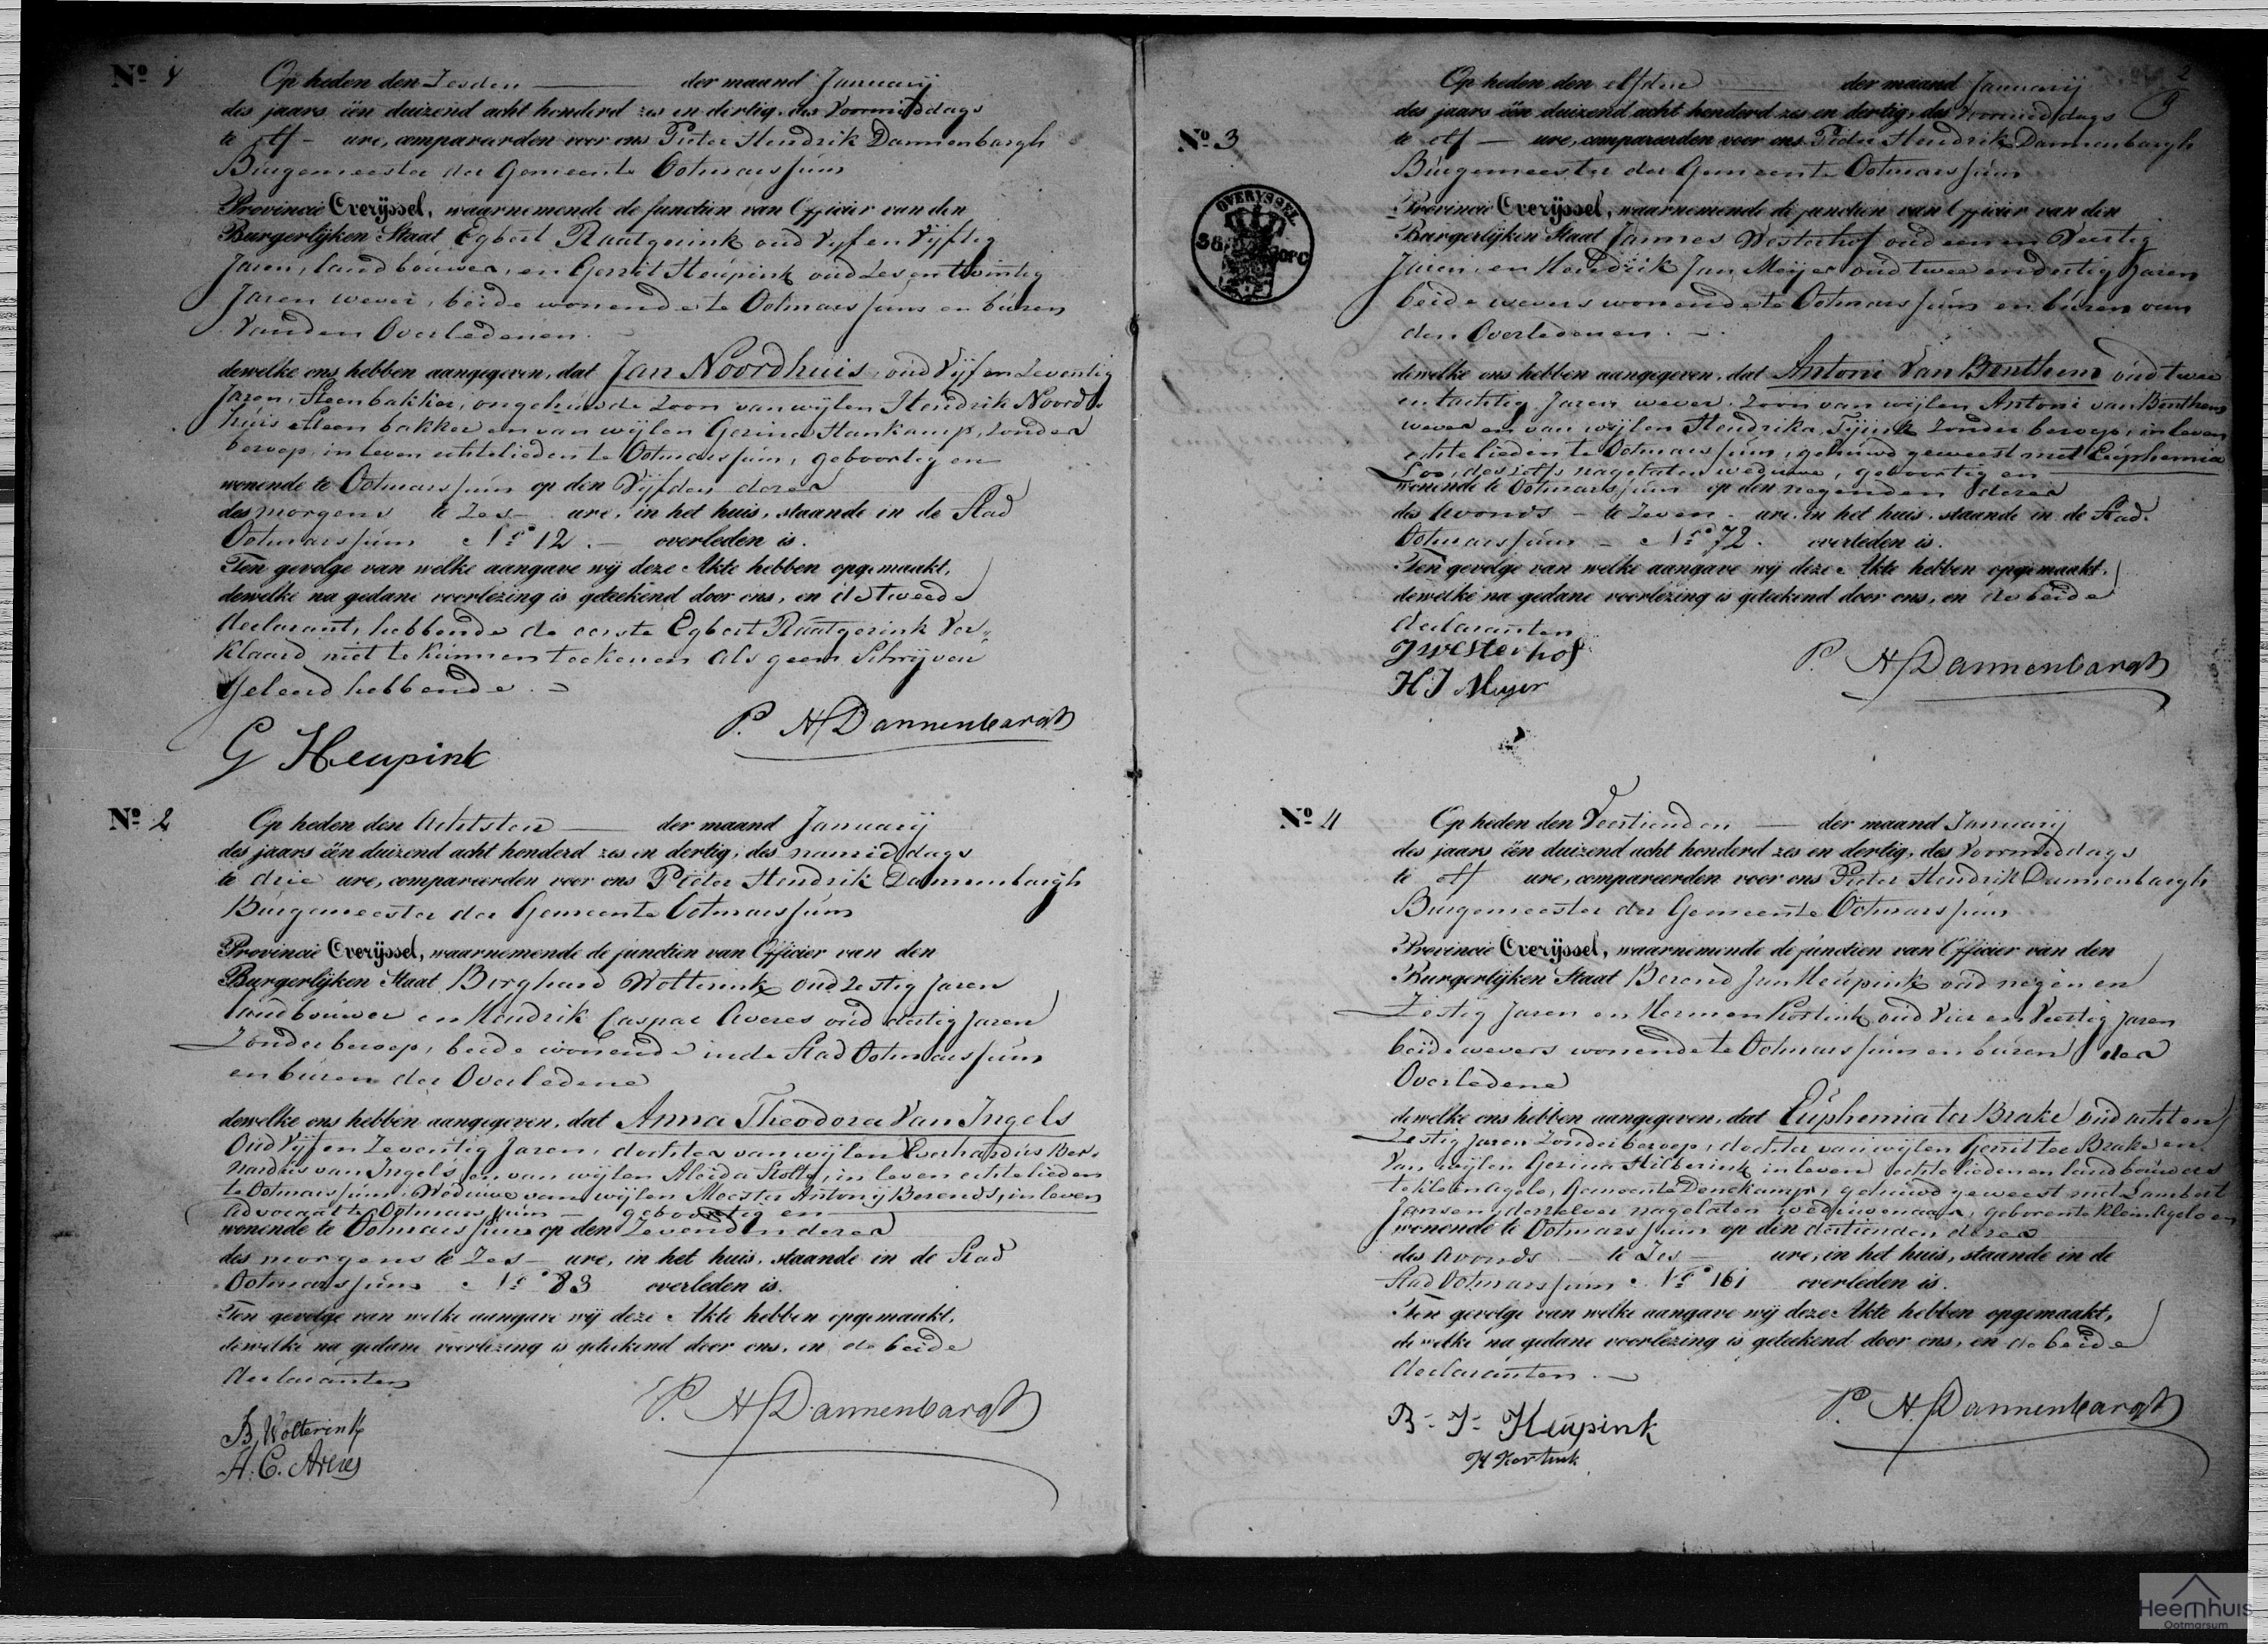 No 1
Op heden den Zesden der maand Januarij
des jaars één duizend acht honderd zes en dertig, des Voormiddags
te elf ure, compareerden voor ons Pieter Hendrik Dannenbargh
Burgemeester der Gemeente Ootmarssum
Provincie Overijssel, waarnemende de functien van Officier van den
Burgerlijken Staat Egbert Raatgerink oud Vyf en Vyftig
Jaren, landbouwer, en Gerrit Heupink oud Zes en twintig
Jaren wever, beide wonende te Ootmarssum en buren
van den Overledenen.
dewelke ons hebben aangegeven, dat Jan Noordhuis, oud Vyf en Zeventig
Jaren, Steenbakker, ongehuwde Zoon van wylen Hendrik Noord-
huis Steenbakker en van wylen Gerina Hankamp, zonder
beroep, in leven echtelieden te Ootmarssum, geboortig en
wonende te Ootmarssum op den Vyfden dezer
des morgens te Zes ure, in het huis, staande in de Stad
Ootmarssum No 12. overleden is.
Ten gevolge van welke aangave wij deze Akte hebben opgemaakt,
dewelke na gedane voorlezing is geteekend door ons, en de tweede
declarant, hebbende de eerste Egbert Raatgerink ver-
klaard niet te kunnen teekenen als geen Schryven
geleerd hebbende.
P. H Dannenbargh
G Heupink
No 2
Op heden den Achtsten der maand Januarij
des jaars één duizend acht honderd zes en dertig, des namiddags
te drie ure, compareerden voor ons Pieter Hendrik Dannenbargh
Burgemeester der Gemeente Ootmarssum
Provincie Overijssel, waarnemende de functien van Officier van den
Burgerlijken Staat Borghard Wolterink oud Zestig Jaren
landbouwer en Hendrik Caspar Averes oud dertig Jaren
Zonder beroep, beide wonende in de Stad Ootmarssum
en buren der Overledene
dewelke ons hebben aangegeven, dat Anna Theodora Van Ingels
Oud Vyf en Zeventig Jaren, dochter van wylen Everhardus Ber-
nardus van Ingels en van wylen Aleida Stolte, in leven echtelieden
te Ootmarssum, Weduwe van wylen Meester Antony Berends, in leven
advocaat te Ootmarssum geboortig en
wonende te Ootmarssum op den Zevenden dezer
des morgens te Zes ure, in het huis, staande in de Stad
Ootmarssum No 83 overleden is.
Ten gevolge van welke aangave wij deze Akte hebben opgemaakt,
dewelke na gedane voorlezing is geteekend door ons, en de beide
declaranten
P. H Dannenbargh
B, Wolterink
H. C. Averes
2
No 3
OVERYSSEL
Op heden den elfden der maand Januarij
des jaars één duizend acht honderd zes en dertig, des Voormiddags
te elf ure, compareerden voor ons Pieter Hendrik Dannenbargh
Burgemeester der Gemeente Ootmarssum
Provincie Overijssel, waarnemende de functien van Officier van den
Burgerlijken Staat Jannes Westerhof oud een en Veertig
Jaren, en Hendrik Jan Meyer oud twee en dertig Jaren
beide wevers wonende te Ootmarssum en buren van
den Overledenen.
dewelke ons hebben aangegeven, dat Antoni Van Benthem oud twee
en tachtig Jaren wever. Zoon van wylen Antoni van Benthem
wever en van wylen Hendrika Tyink Zonder beroep, in leven
echtelieden te Ootmarssum, gehuwd geweest met Euphemia
Loo, deszelfs nagelaten weduwe, geboortig en
wonende te Ootmarssum op den negenden dezer
des Avonds te Zeven ure, in het huis, staande in de Stad
Ootmarssum No 72. overleden is.
Ten gevolge van welke aangave wij deze Akte hebben opgemaakt,
dewelke na gedane voorlezing is geteekend door ons, en de beide
declaranten
J Westerhof
H J Meyer
P. H Dannenbargh
No 4
Op heden den Veertienden der maand Januarij
des jaars één duizend acht honderd zes en dertig, des Voormiddags
te elf ure, compareerden voor ons Pieter Hendrik Dannenbargh
Burgemeester der Gemeente Ootmarssum
Provincie Overijssel, waarnemende de functien van Officier van den
Burgerlijken Staat Berend Jan Heupink oud negen en
Zestig Jaren en Hermen Kortink oud Vier en Veertig Jaren
beide wevers wonende te Ootmarssum en buren der
Overledene
dewelke ons hebben aangegeven, dat Euphemia ter Brake oud acht en
Zestig Jaren Zonder beroep, dochter van wylen Gerrit ter Brake en
van wylen Gerina Hilberink in leven echtelieden en landbouwers
te Klein Agelo, Gemeente Denekamp, gehuwd geweest met Lambert
Jansen, derzelver nagelaten weduwenaar, geboren te Klein Agelo en
wonende te Ootmarssum op den dertienden dezer
des Avonds te Zes ure, in het huis, staande in de
Stad Ootmarssum No 161 overleden is.
Ten gevolge van welke aangave wij deze Akte hebben opgemaakt,
dewelke na gedane voorlezing is geteekend door ons, en de beide
declaranten.
P. H. Dannenbargh
B. J. Heupink
H Kortink
Heemhuis
Ootmarsum